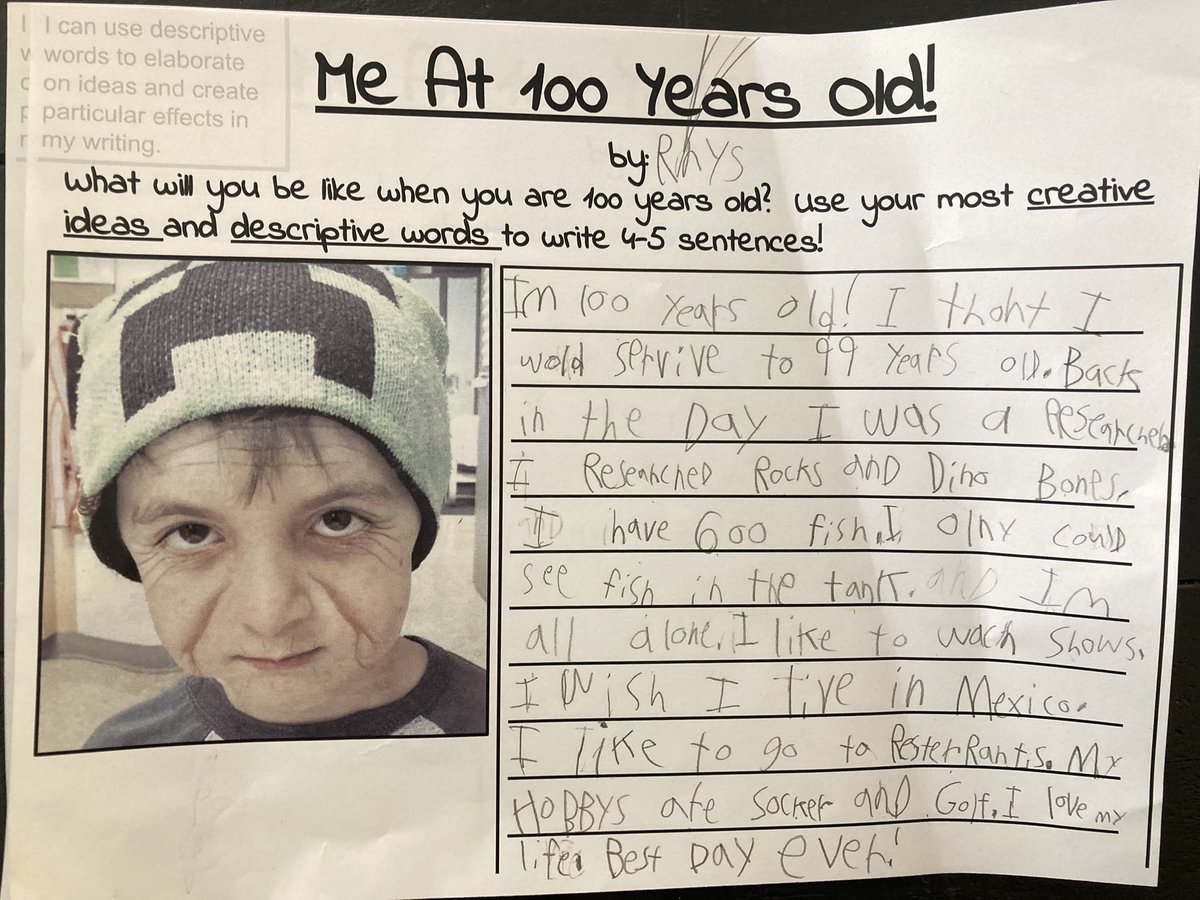 I can use descriptive
words to elaborate
on ideas and create
particular effects in
my writing.
Me At 100 Years Old!
by: Rhys
What will you be like when you are 100 years old? Use your most creative
ideas and descriptive words to write 4-5 sentences!
Im 100 years old! I thoht I
wold servive to 99 years old. Back
in the Day I was a Researcher
I Researched Rocks and Dino Bones.
I have 600 fish. I olny could
see fish in the tank. and Im
all alone. I like to wach shows.
I wish I live in Mexico.
I like to go to Resterrants. My
HOBBYS are Socker and Golf. I love my
life. Best Day ever!